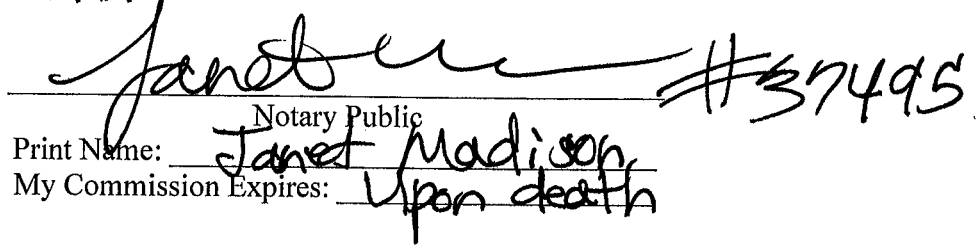 Janet #37495
Notary Public
Print Name: Janet Madison
My Commission Expires: Upon death